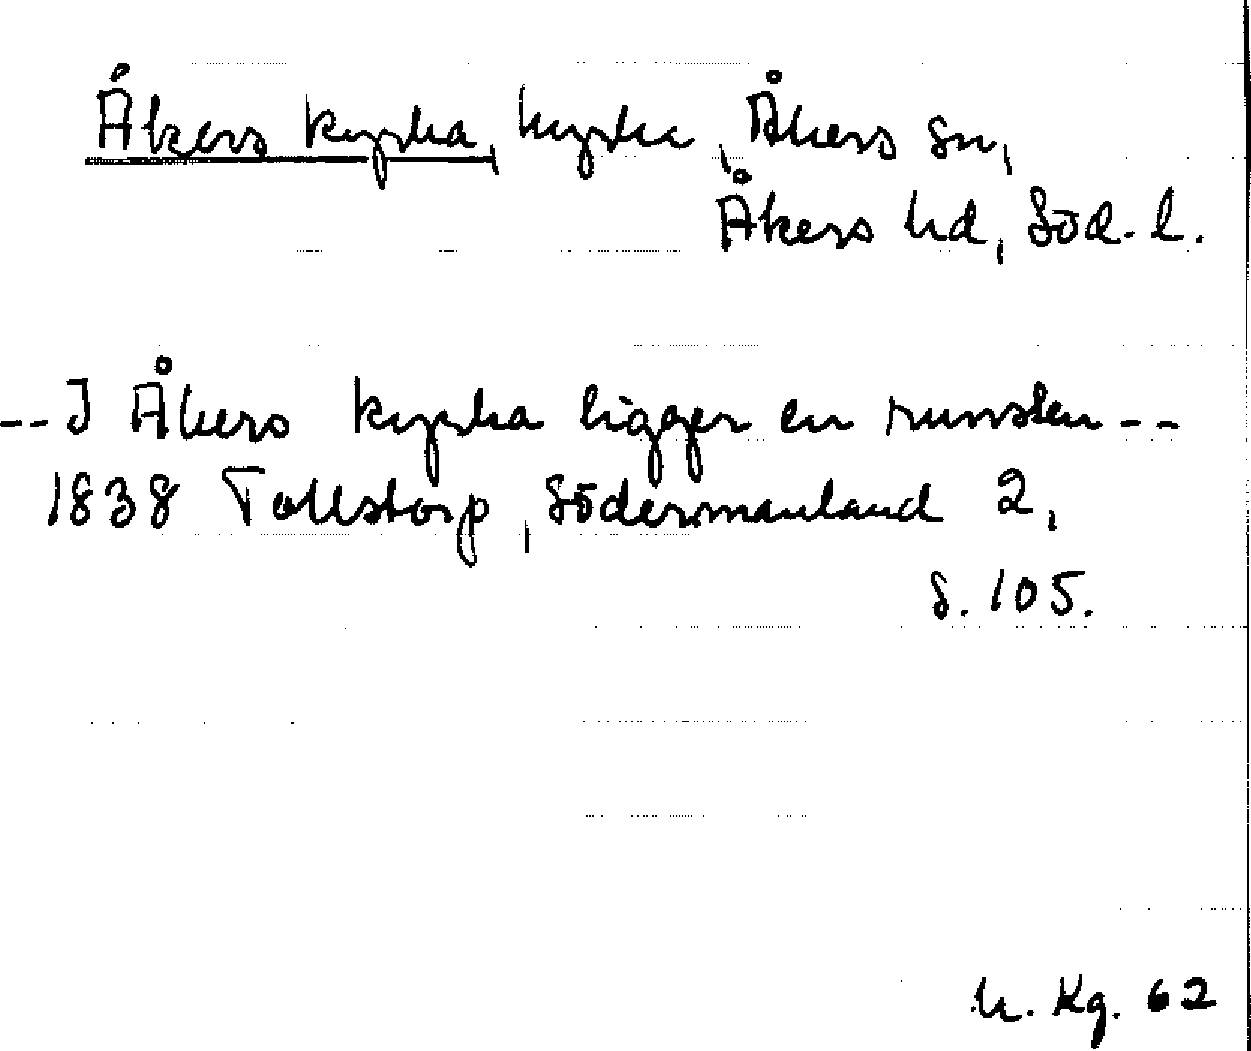 Åkers kyrka, kyrka, Åkers sn,
Åkers hd, Söd. l.
-- I Åkers kyrka ligger en runsten --
1838 Tollstorp, Södermanland 2,
s. 105.
Kg. 62